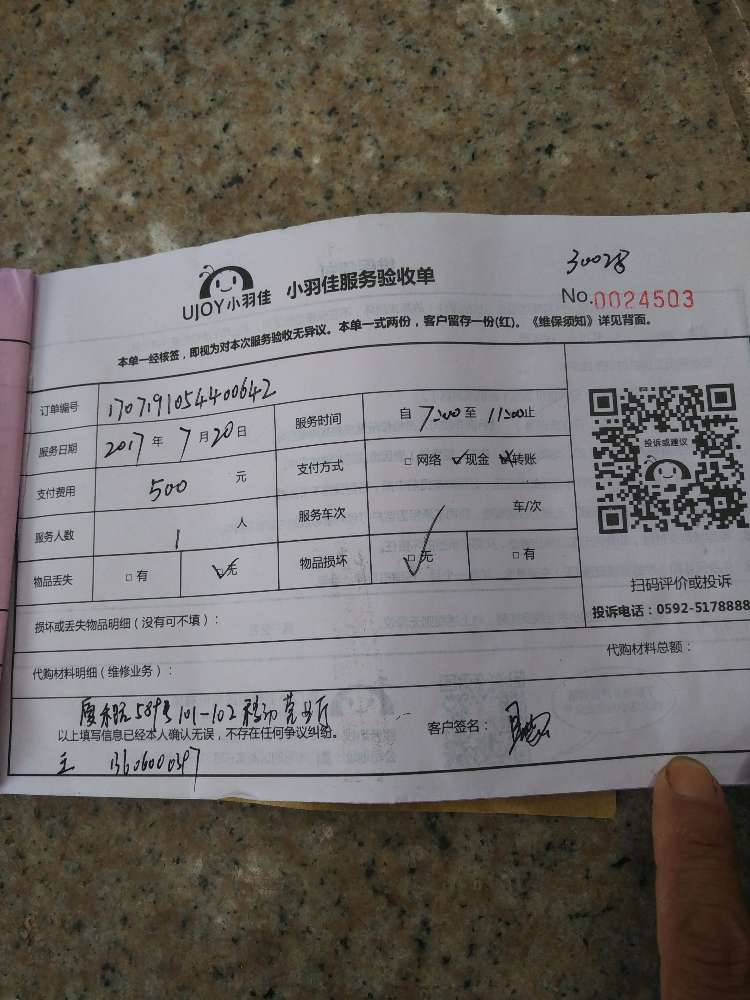 30028
UJOY小羽佳 小羽佳服务验收单
No.0024503
本单一经核签，即视为对本次服务验收无异议。本单一式两份，客户留存一份(红)。《维保须知》详见背面。
订单编号 1707191054400642
服务日期 2017 年 7 月 20 日 服务时间 自 7:00 至 11:00止
支付费用 500 元 支付方式 □ 网络 ✓现金 转账
服务人数 1 人 服务车次 车/次
物品丢失 □ 有 ✓无 物品损坏 ✓无 □ 有
投诉或建议
扫码评价或投诉
投诉电话：0592-5178888
损坏或丢失物品明细（没有可不填）：
代购材料明细（维修业务）： 代购材料总额：
厦禾路589号101-102移动营业厅
以上填写信息已经本人确认无误，不存在任何争议纠纷。 客户签名：